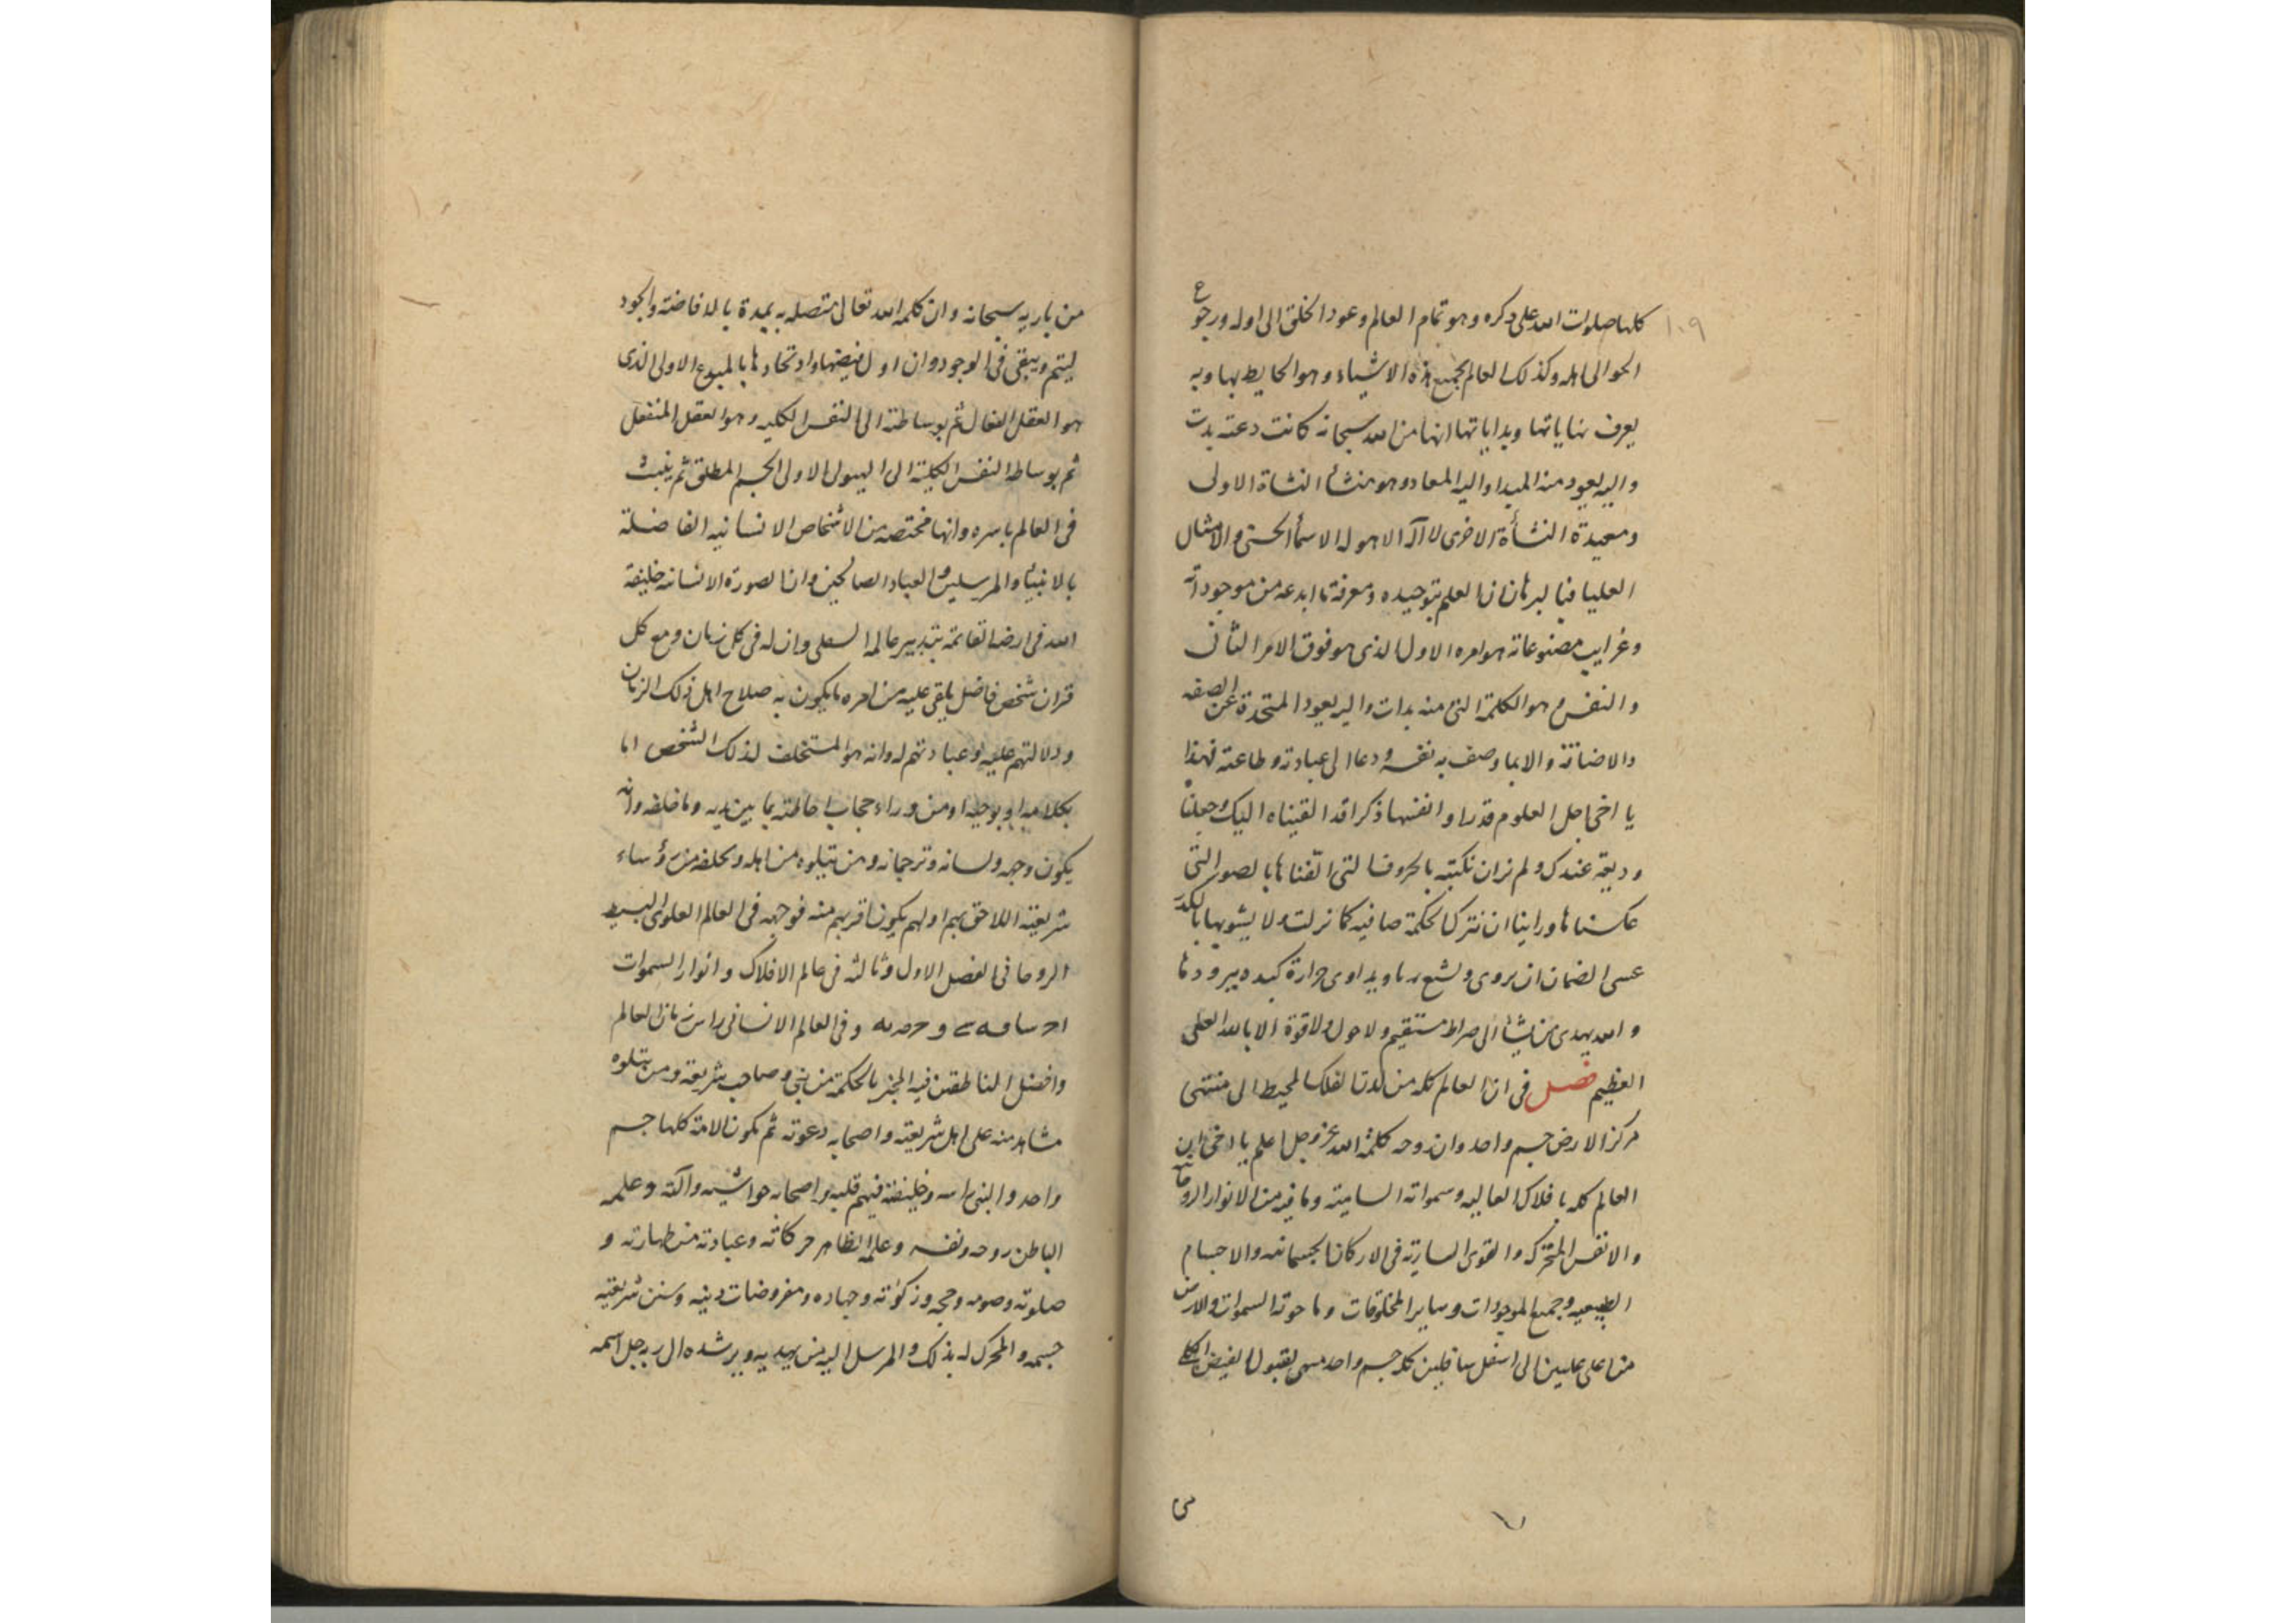 ١٠٩
كلها صلوات الله على ذكره وهو تمام العالم وعود الخلق الى اوله ورجوع
الحق الى اهله وكذلك العالم بجميع هذه الاشياء وهو الحايط بها وبه
يعرف نهاياتها وبداياتها انها من الله سبحانه كانت دعته بدت
واليه يعود منه المبدا واليه المعاد وهو منشأ النشاة الاولى
ومعيدة النشأة الاخرى لا آله الا هو له الاسمآ الحسنى والامثال
العليا فبالبرهان ان العلم بتوحيده ومعرفة ما ابدعه من موجوداته
وغرايب مصنوعاته هو امره الاول الذى هو فوق الامر الثانى
والنفس وهو الكلمة التى منه بدات واليه يعود المتحدة عن الصفه
والاضافة والا بما وصف به نفسه ودعا الى عبادته وطاعته فهذا
يا اخى اجل العلوم قدرا وانفسها ذكرا قد القيناه اليك وجعلناه
وديعة عندك ولم نر ان نكتبه بالحروف التى القناها بالصور التى
عكسناها وراينا ان نترك الحكمة صافيه كما نزلت ولا يشوبها بالكدر
عسى الضمان ان يروى ويشبع ريا ويداوى حرارة كبده ببرودها
والله يهدى من يشأ الى صراط مستقيم ولا حول ولا قوة الا بالله العلى
العظيم فصل فى ان العالم كله من لدن الفلك المحيط الى منتهى
مركز الارض جسم واحد وان روحه كلمة الله عز وجل اعلم يا اخى ان
العالم كله بافلاك العاليه وسمواته السامية وما فيه من الانوار الروحانية
والانفس المتحركه والقوى السارية فى الاركان الجسمانيه والاجسام
الطبيعيه وجميع الموجودات وساير المخلوقات وما حوته السموات والارض
من اعلى عليين الى اسفل سافلين كله جسم واحد مهيى لقبول الفيض الكلى
من باريه سبحانه وان كلمه الله تعالى متصله به يمده بالافاضة والجود
ليتم ويبقى فى الوجود وان اول فيضها واتحادها بالمبدع الاول الذى
هو العقل الفعال ثم بوساطته الى النفس الكليه وهو العقل المنفعل
ثم بوساطه النفس الكلية الى الهيولى الاولى الجسم المطلق ثم ينبث
فى العالم باسره وانها مختصه من الاشخاص الانسانيه الفاضلة
بالانبياء والمرسلين والعباد الصالحين وان الصورة الانسانه خليفة
الله فى ارضه القائمة بتدبير عالمه السفلى وان له فى كل زمان ومع كل
قران شخص فاضل يلقى عليه من امره ما يكون به صلاح اهل ذلك الزمان
ودلالتهم عليه وعبادتهم له وانه هو المستخلف لذلك الشخص اما
بكلامه او بوحيه او من وراء حجاب احاطته بما بين يديه وما خلفه وانه
يكون وجهه ولسانه وترجمانه ومن يتلوه من اهله ويخلفه من رؤساء
شريعته اللاحق بهم اولهم يكون اقربهم منه فوجهه فى العالم العلوى البسيط
الروحانى الفصل الاول وثالثه فى عالم الافلاك وانوار السموات
وفى العالم الانسانى راس زمان العالم
وافضل الناطقين فيه المخبر بالحكمة من نبى وصاحب شريعة ومن يتلوه
مشاهد منه على اهل شريعته واصحابه دعوته ثم يكون الامة كلها جسم
واحد والنبى راسه وخليفته فيهم قلبه واصحابه حواشيه وآلته وعلمه
الباطن روحه ونفسه وعلمه الظاهر حركاته وعبادته من طهارته و
صلوته وصومه وحجه وزكوٰته وجهاده ومفروضات دينه وسنن شريعته
جسمه والمحرك له بذلك والمرسل اليه من يهديه ويرشده الى ربه جل اسمه